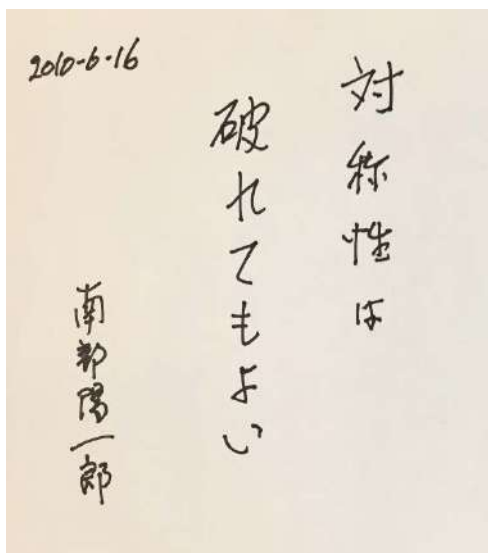 対称性は
破れてもよい
2010-6-16
南部陽一郎